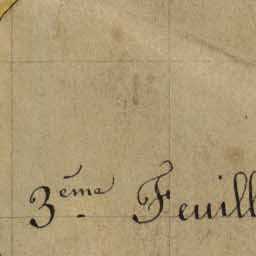 3ème Feuill